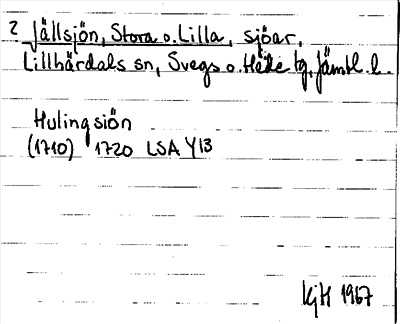 2 Jällsjön, Stora o. Lilla, sjöar,
Lillhärdals sn, Svegs o. Hede tg, Jämtl. l.
Hulingsiön
(1710) 1720 LSA Y13
KjH 1967